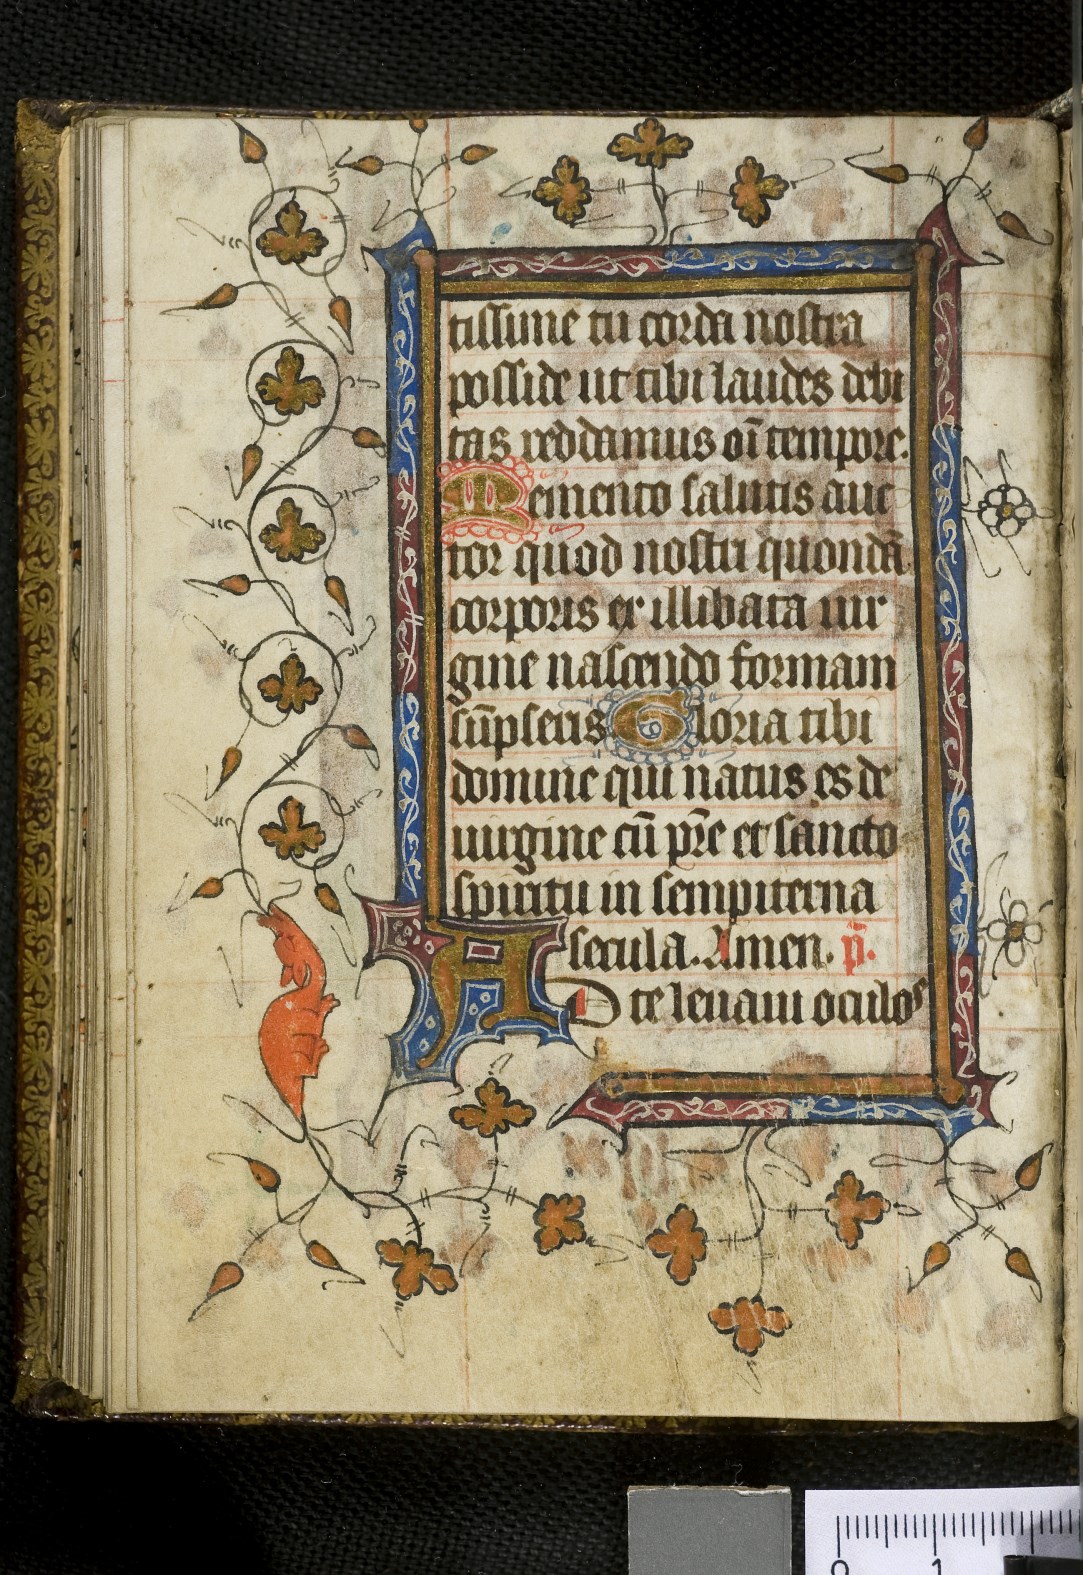 tissime tu corda nostra
posside ut tibi laudes debi
tas reddamus oī tempore.
Memento salutis auc
tor quod nostri quondā
corporis ex illibata uir
gine nascendo formam
sūpseris Gloria tibi
domine qui natus es de
uirgine cū pr̄e et sancto
spiritu in sempiterna
secula. Amen. p̄.
AD te leuaui oculos
0 1